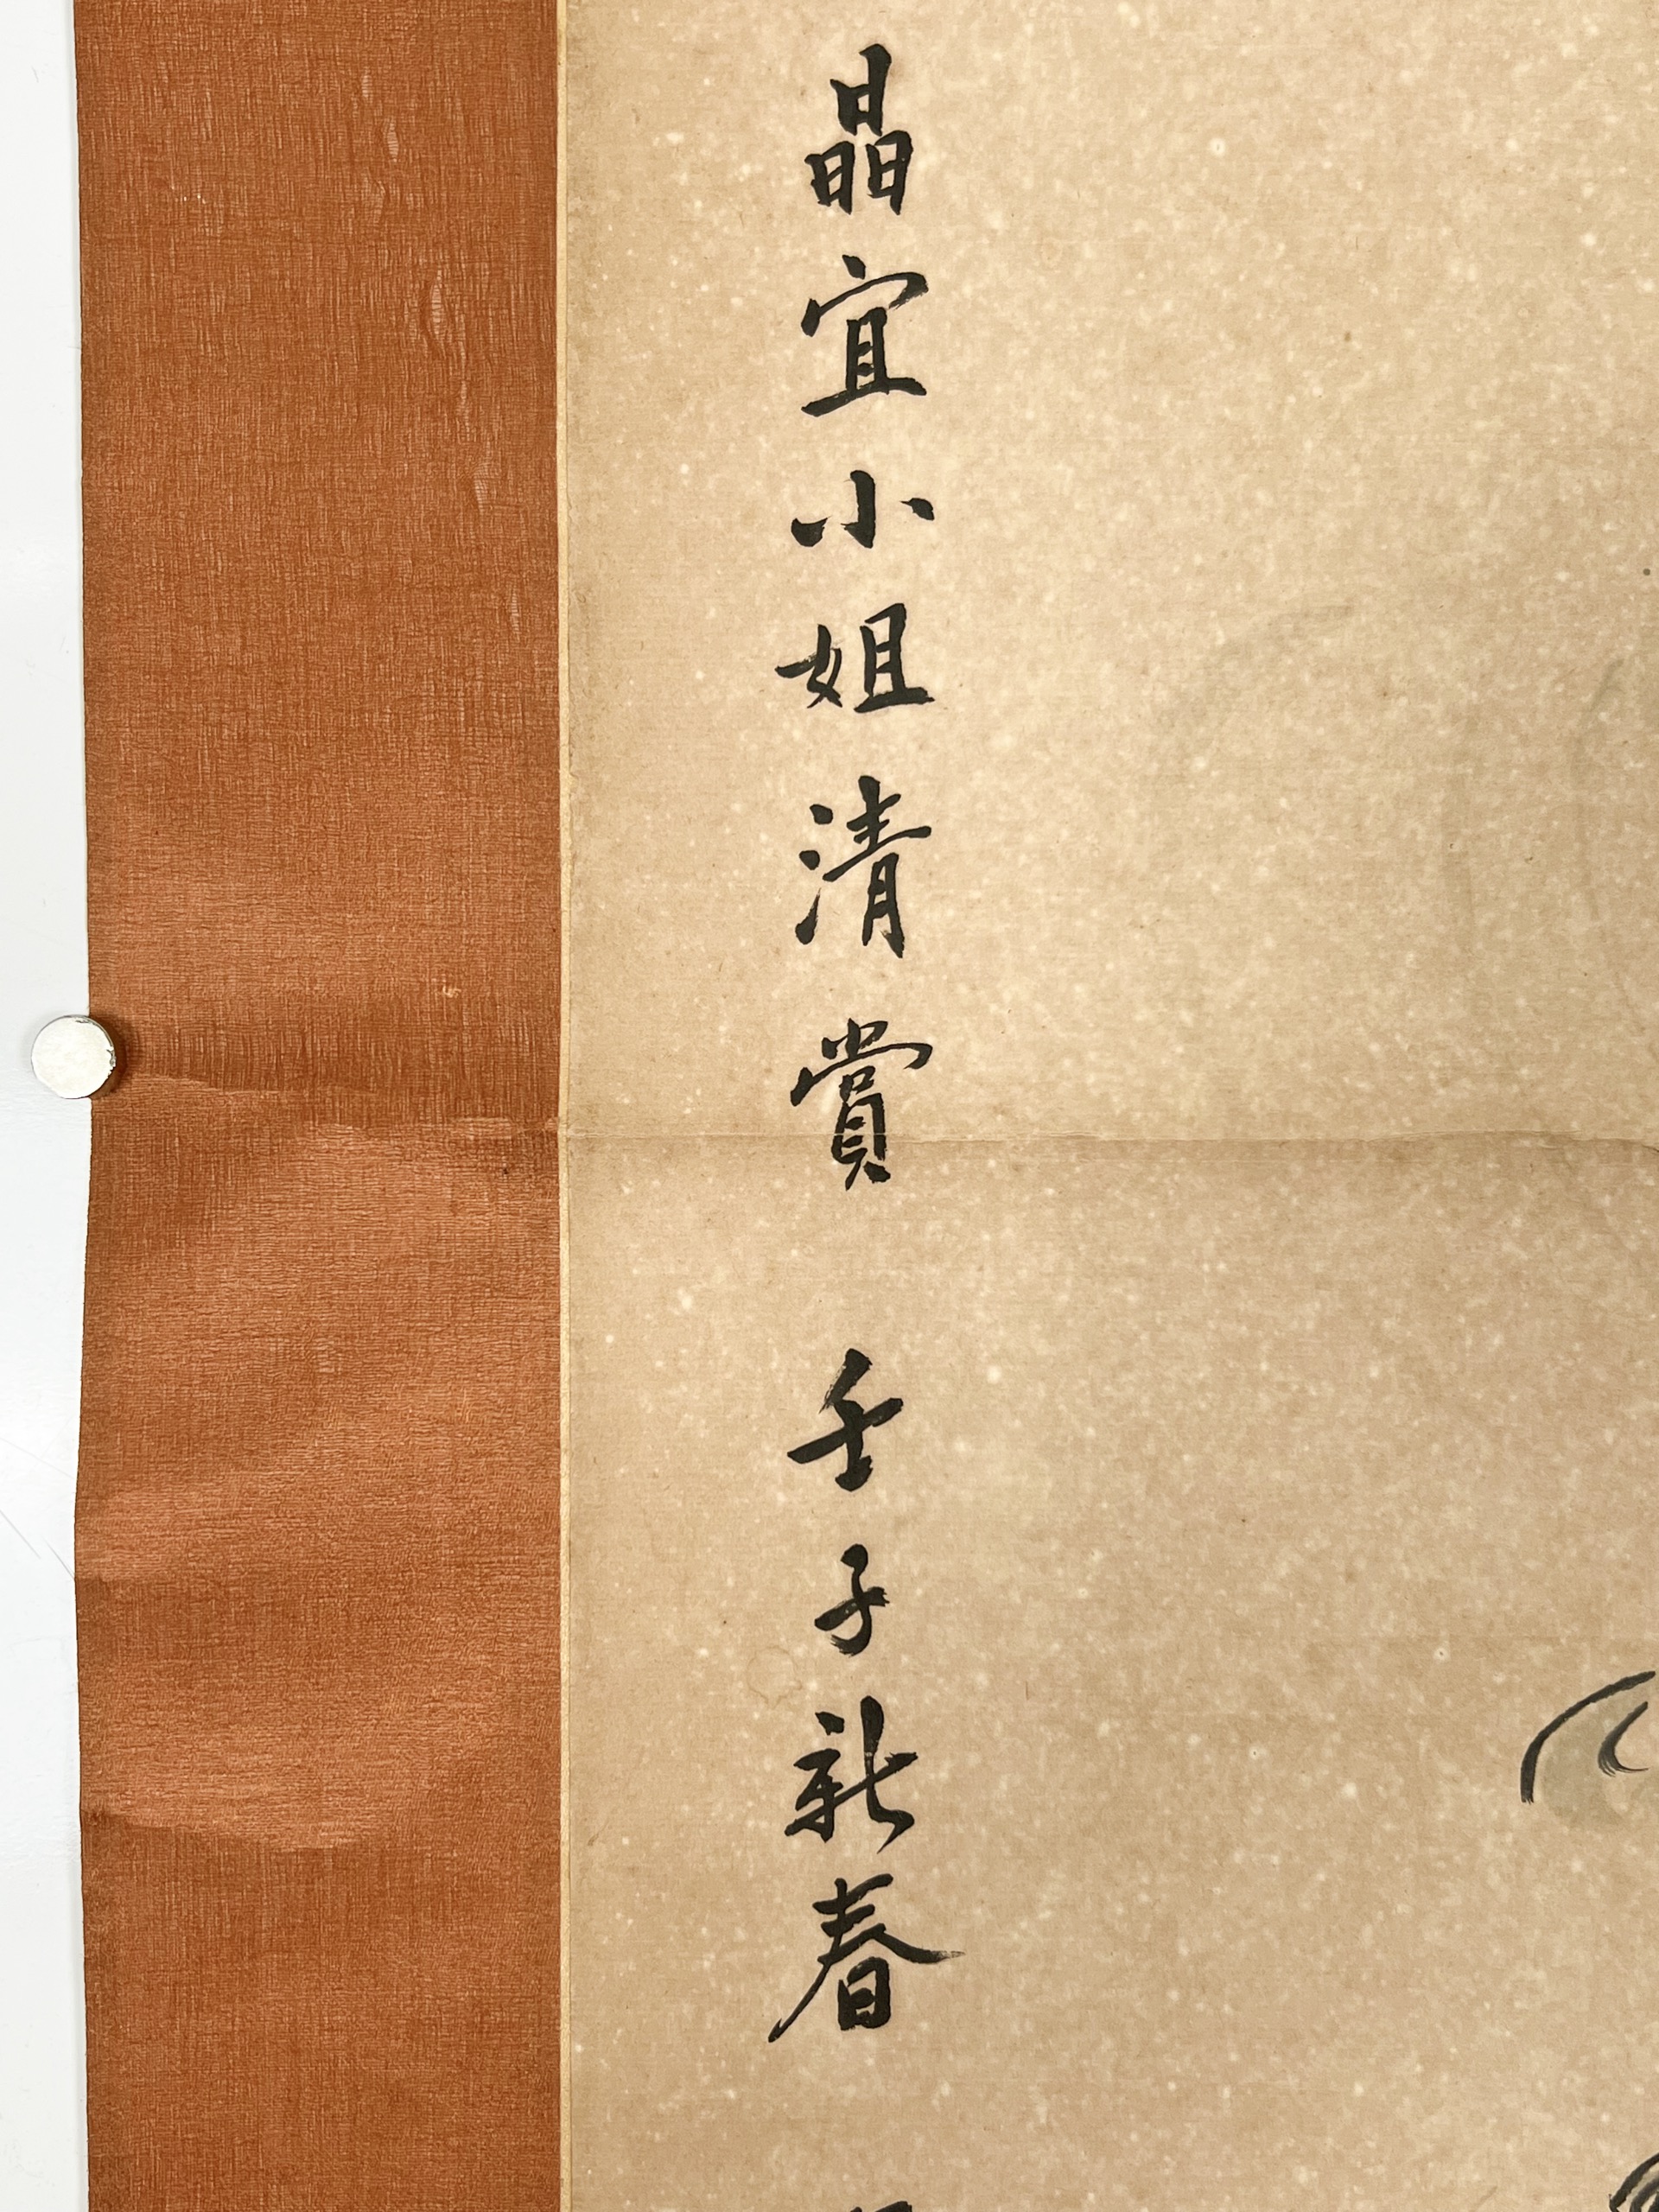 晶宜小姐清賞 壬子新春